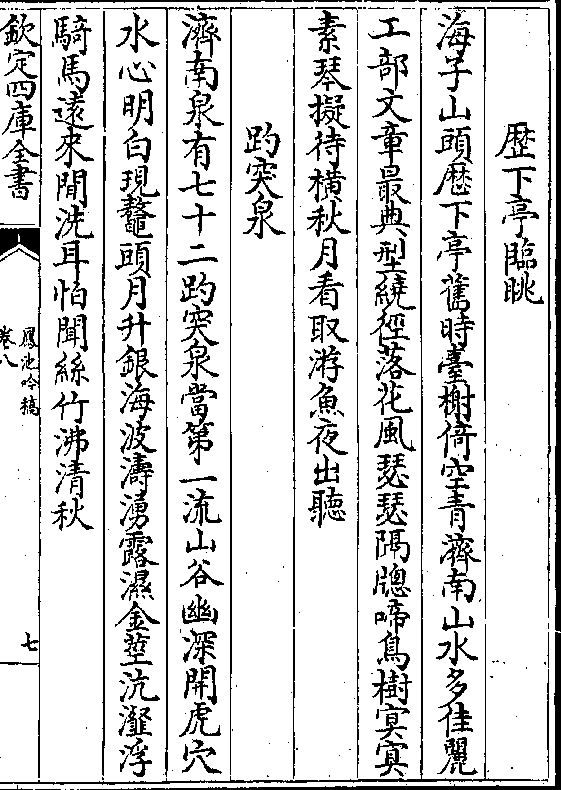 歴下亭臨眺
海子山頭歴下亭舊時臺榭倚空青濟南山水多佳麗
工部文章最典型繞徑落花風瑟瑟隔牕啼鳥樹冥冥
素琴擬待橫秋月看取游魚夜出聽
趵突泉
濟南泉有七十二趵突泉當第一流山谷幽深開虎穴
水心明白現鼇頭月升銀海波濤湧露濕金莖沆瀣浮
騎馬遠來閒洗耳怕聞絲竹沸清秋
欽定四庫全書
鳳池吟稿
卷八
七